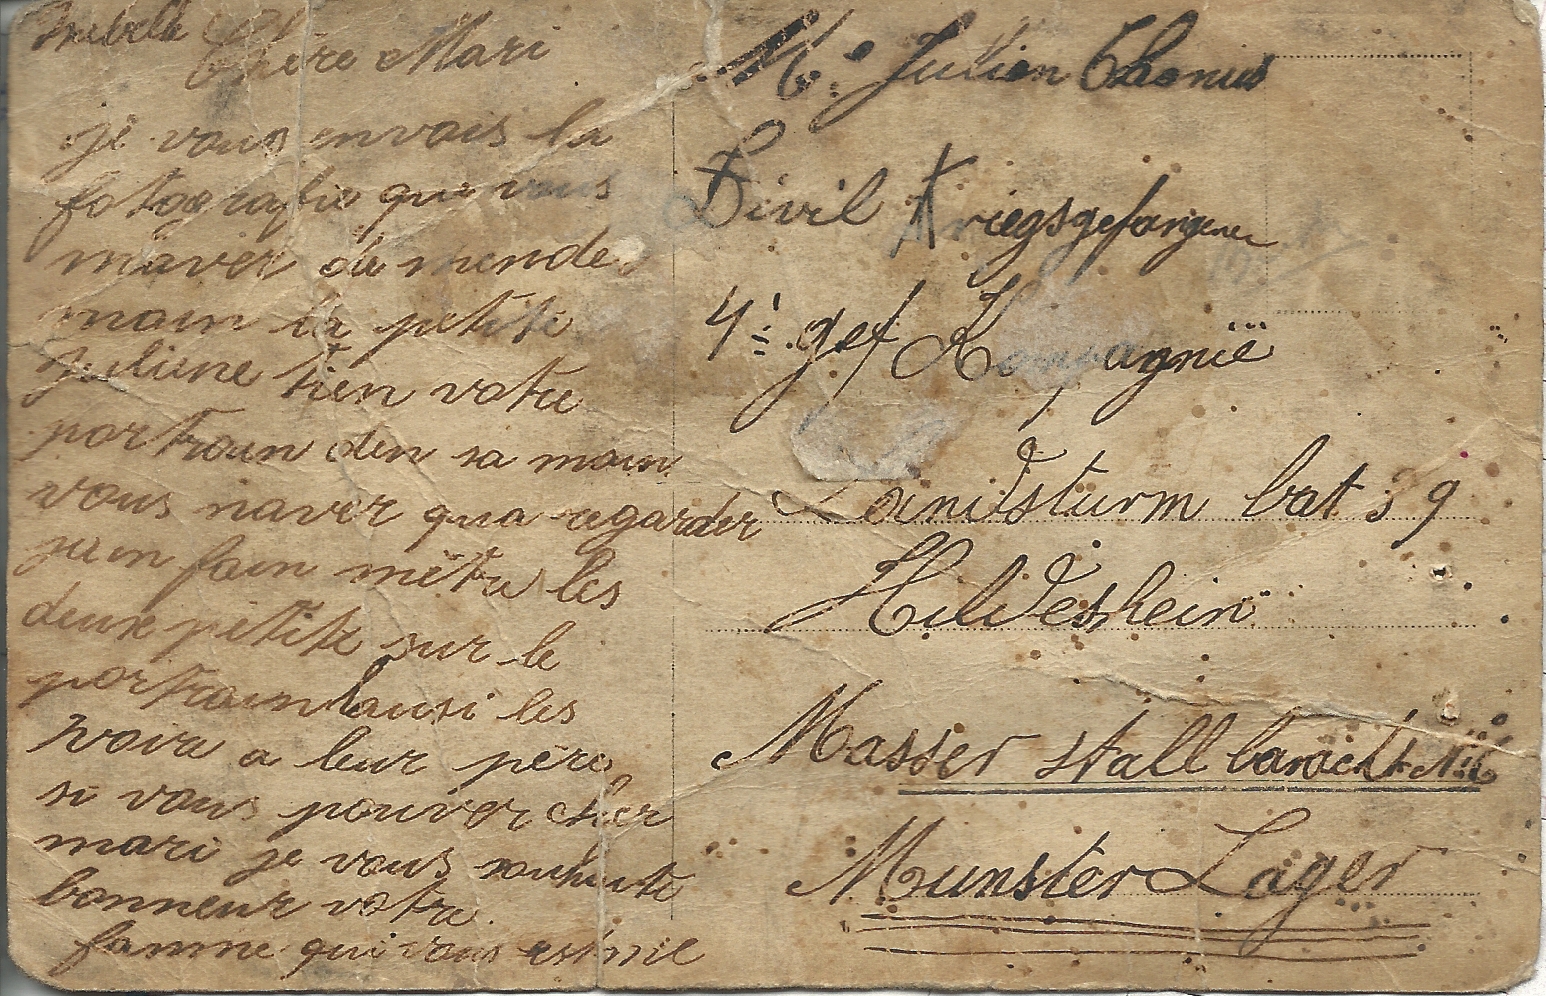 Chère Mari
je vous envois la
fotografie que vous
maver de mende
main la petite
Juliene tien votre
portrain den sa main
vous naver qua regarder
jain fain mètre les
deux petite sur le
portrain ausi les
voir a leur père
si vous pouver cher
mari je vous souhaite
bonneur votre
famme qui vous estime
Mr Julien Thonus
Civil Kriegsgefangener
4è gef Kompagnie
Landsturm bat 39
Hildeshein
Masser stall barackk
Munster Lager